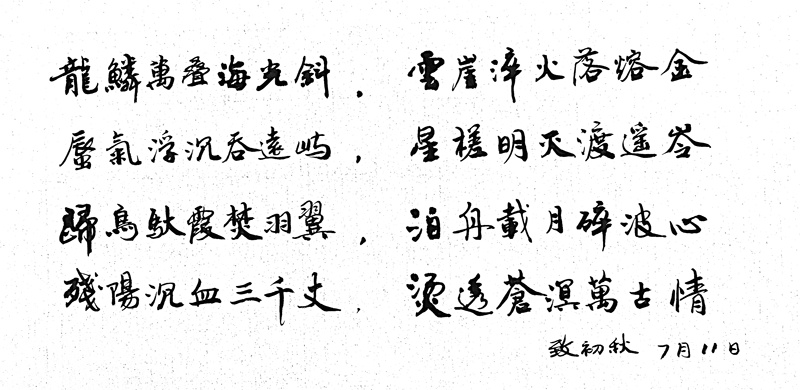 龍鱗萬叠海光斜，雲崖淬火落熔金
蜃氣浮沉吞遠嶼，星槎明灭渡遥岑
歸鳥馱霞焚羽翼，泊舟載月碎波心
殘陽沉血三千丈，燙透蒼溟萬古情
致初秋 7月11日